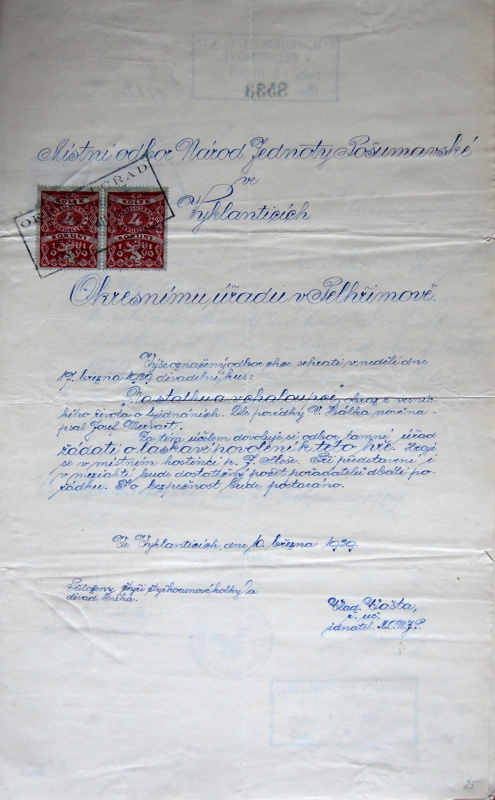 8533
Místní odbor Národ. Jednoty Pošumavské
ve
Vyklanticích
KOLEK
4
KORUNY
KOLEK
4
KORUNY
Okresnímu úřadu v Pelhřimově.
Výše označený odbor chce sehrati v neděli dne
17. března 1929 divadelní kus:
„Na statku a v chaloupce", obraz z vesnic-
kého života o 4 jednáních. Dle povídky V. Hálka
psal Josef Mervart.
Za tím účelem dovoluje si odbor tamní úřad
žádati o laskavé povolení k této hře. Hraje
se v místním hostinci p. J. Představení i
bude dostatečný počet pořadatelů dbáti po-
řádku. O bezpečnost bude postaráno.
Ve Vyklanticích, dne 10. března 1929.
Přiloženy čtyři čtyřkorunové kolky a
divad. kniha.
Vlad. Vašta,
ř. uč.
jednatel M.O.N.J.P.
25